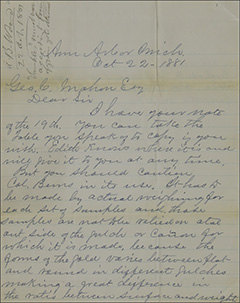 Ann Arbor Mich.
Oct 22 - 1881.
Geo. C. Esq
Dear Sir
I have your note
of the 19th. You can take the
table you speak of to copy if you
wish. Edith knows where it is and
will give it to you at any time.
But you should caution
Col. Bemis in its use. It has to
be made by actual weighing for
each set of samples and those
samples are not the relation at a
out side of the gulch or Cañon for
which it is made, because the
forms of the gold varie between flat
and round in different gulches
making a great difference in
the ratio between surface and weight